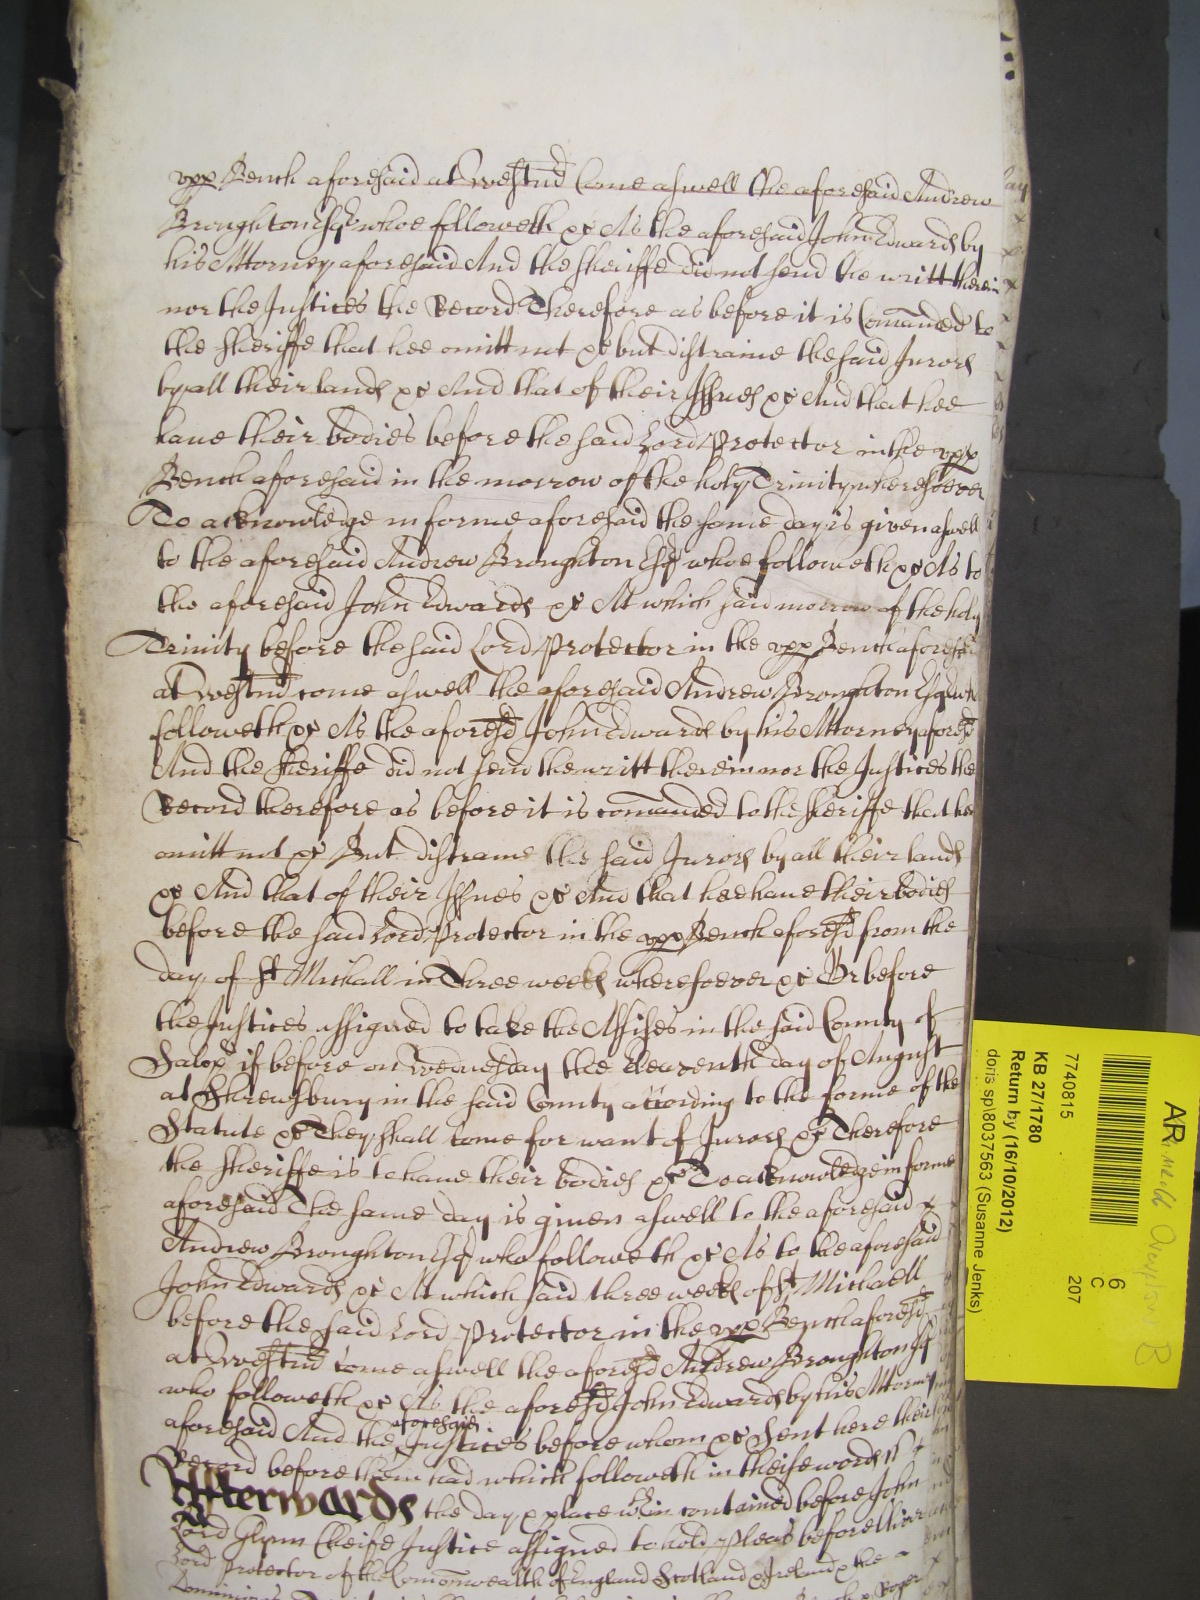 vpp Bench aforesaid at Westmd Come aswell the aforesaid Andrew
Broughton Esqr whoe followeth &c As the aforesaid John Edwards by
his Attorney aforesaid And the sheriffe did not send the writt therein
nor the Justices the Record Therefore as before it is Comanded to
the sheriffe that hee omitt not &c but distraine the said Jurors
by all their lands &c And that of their Issues &c And that hee
haue their bodies before the said Lord Protector in the vpp
Bench aforesaid in the morrow of the holy Trinity wheresoever
To acknowledge in forme aforesaid the same day is given aswell
to the aforesaid Andrew Broughton Esqr whoe followeth &c As to
the aforesaid John Edwards &c At which said morrow of the holy
Trinity before the said Lord Protector in the vpp Bench aforesaid
at Westmd come aswell the aforesaid Andrew Broughton Esq who
followeth &c As the aforesd John Edwards by his Attorney aforesd
And the sheriffe did not send the writt therein nor the Justices the
Record therefore as before it is comanded to the sheriffe that hee
omitt not &c But distraine the said Jurors by all their lands
&c And that of their Issues &c And that hee haue their bodies
before the said Lord Protector in the vpp Bench aforesd from the
day of St Michall in Three weeks wheresoever &c Or before
the Justices assigned to take the Assises in the said County of
Salop if before on Wednesday the Eleaventh day of August
at Shrewsbury in the said County according to the forme of the
Statute &c They shall come for want of Jurors &c Therefore
the sheriffe is to haue their bodies &c To acknowledge in forme
aforesaid The same day is given aswell to the aforesaid
Andrew Broughton Esqr who followeth &c As to the aforesaid
John Edwards &c At which said three weeks of St Michaell
before the said Lord Protector in the vpp Bench aforesd
at Westmd come aswell the aforesd Andrew Broughton Esqr
who followeth &c As the aforesd John Edwards by his Attorney
aforesaid And the aforesaid Justices before whom &c Sent here their
Record before them had which followeth in theise words ss
Afterwards the day & place wthin contained before John
Lord Glynn Cheife Justice assigned to hold Pleas before Oliver
Lord Protector of the Comonwealth of England Scotland & Ireland & the
Dominions
& Roger
AR
6
C
207
7740815
KB 27/1780
Return by (16/10/2012)
doris sp\8037563 (Susanne Jenks)